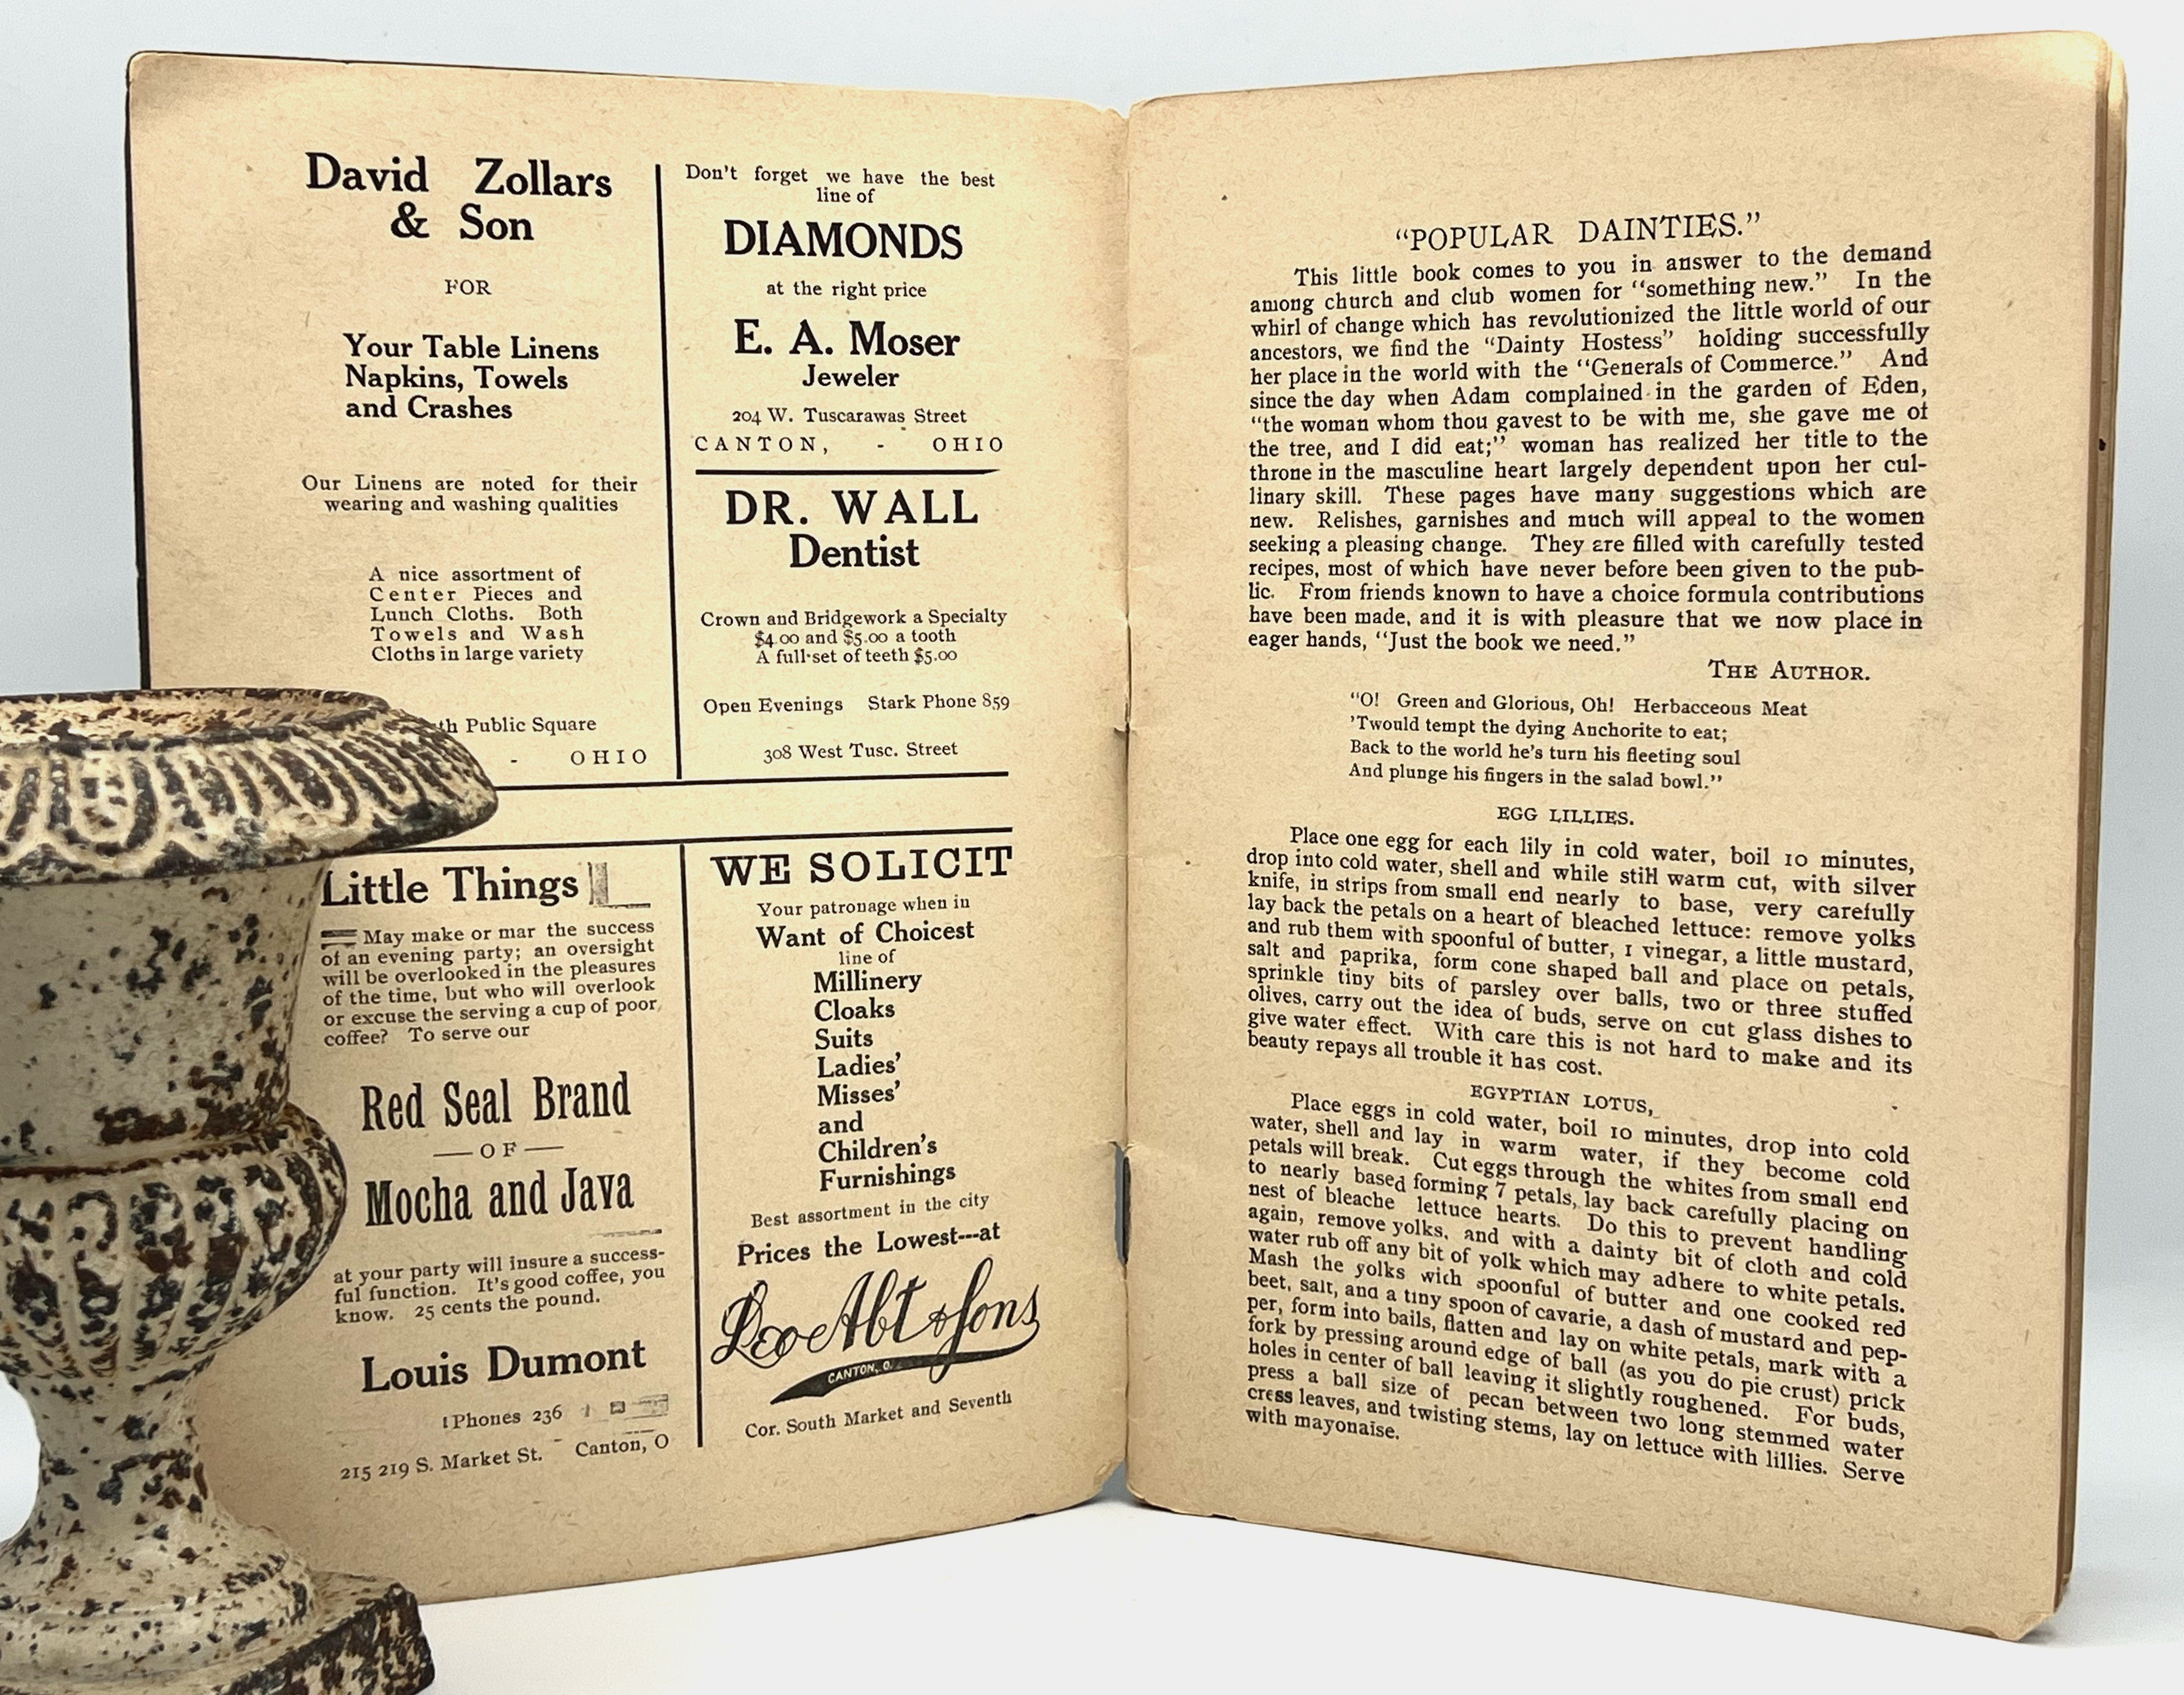 David Zollars
& Son
FOR
Your Table Linens
Napkins, Towels
and Crashes
Our Linens are noted for their
wearing and washing qualities
A nice assortment of
Center Pieces and
Lunch Cloths. Both
Towels and Wash
Cloths in large variety
Public Square
- OHIO
Don't forget we have the best
line of
DIAMONDS
at the right price
E. A. Moser
Jeweler
204 W. Tuscarawas Street
CANTON, - OHIO
DR. WALL
Dentist
Crown and Bridgework a Specialty
$4.00 and $5.00 a tooth
A full set of teeth $5.00
Open Evenings Stark Phone 859
308 West Tusc. Street
Little Things
May make or mar the success
of an evening party; an oversight
will be overlooked in the pleasures
of the time, but who will overlook
or excuse the serving a cup of poor
coffee? To serve our
Red Seal Brand
—OF—
Mocha and Java
at your party will insure a success-
ful function. It's good coffee, you
know. 25 cents the pound.
Louis Dumont
Phones 236
215 219 S. Market St. Canton, O
WE SOLICIT
Your patronage when in
Want of Choicest
line of
Millinery
Cloaks
Suits
Ladies'
Misses'
and
Children's
Furnishings
Best assortment in the city
Prices the Lowest---at
Leo Abt & Sons
CANTON, O.
Cor. South Market and Seventh
"POPULAR DAINTIES."
This little book comes to you in answer to the demand
among church and club women for "something new." In the
whirl of change which has revolutionized the little world of our
ancestors, we find the "Dainty Hostess" holding successfully
her place in the world with the "Generals of Commerce." And
since the day when Adam complained in the garden of Eden,
"the woman whom thou gavest to be with me, she gave me of
the tree, and I did eat;" woman has realized her title to the
throne in the masculine heart largely dependent upon her cul-
linary skill. These pages have many suggestions which are
new. Relishes, garnishes and much will appeal to the women
seeking a pleasing change. They are filled with carefully tested
recipes, most of which have never before been given to the pub-
lic. From friends known to have a choice formula contributions
have been made, and it is with pleasure that we now place in
eager hands, "Just the book we need."
THE AUTHOR.
"O! Green and Glorious, Oh! Herbacceous Meat
'Twould tempt the dying Anchorite to eat;
Back to the world he's turn his fleeting soul
And plunge his fingers in the salad bowl."
EGG LILLIES.
Place one egg for each lily in cold water, boil 10 minutes,
drop into cold water, shell and while still warm cut, with silver
knife, in strips from small end nearly to base, very carefully
lay back the petals on a heart of bleached lettuce: remove yolks
and rub them with spoonful of butter, 1 vinegar, a little mustard,
salt and paprika, form cone shaped ball and place on petals,
sprinkle tiny bits of parsley over balls, two or three stuffed
olives, carry out the idea of buds, serve on cut glass dishes to
give water effect. With care this is not hard to make and its
beauty repays all trouble it has cost.
EGYPTIAN LOTUS,
Place eggs in cold water, boil 10 minutes, drop into cold
water, shell and lay in warm water, if they become cold
petals will break. Cut eggs through the whites from small end
to nearly based forming 7 petals, lay back carefully placing on
nest of bleache lettuce hearts. Do this to prevent handling
again, remove yolks, and with a dainty bit of cloth and cold
water rub off any bit of yolk which may adhere to white petals.
Mash the yolks with spoonful of butter and one cooked red
beet, salt, and a tiny spoon of cavarie, a dash of mustard and pep-
per, form into bails, flatten and lay on white petals, mark with a
fork by pressing around edge of ball (as you do pie crust) prick
holes in center of ball leaving it slightly roughened. For buds,
press a ball size of pecan between two long stemmed water
cress leaves, and twisting stems, lay on lettuce with lillies. Serve
with mayonaise.